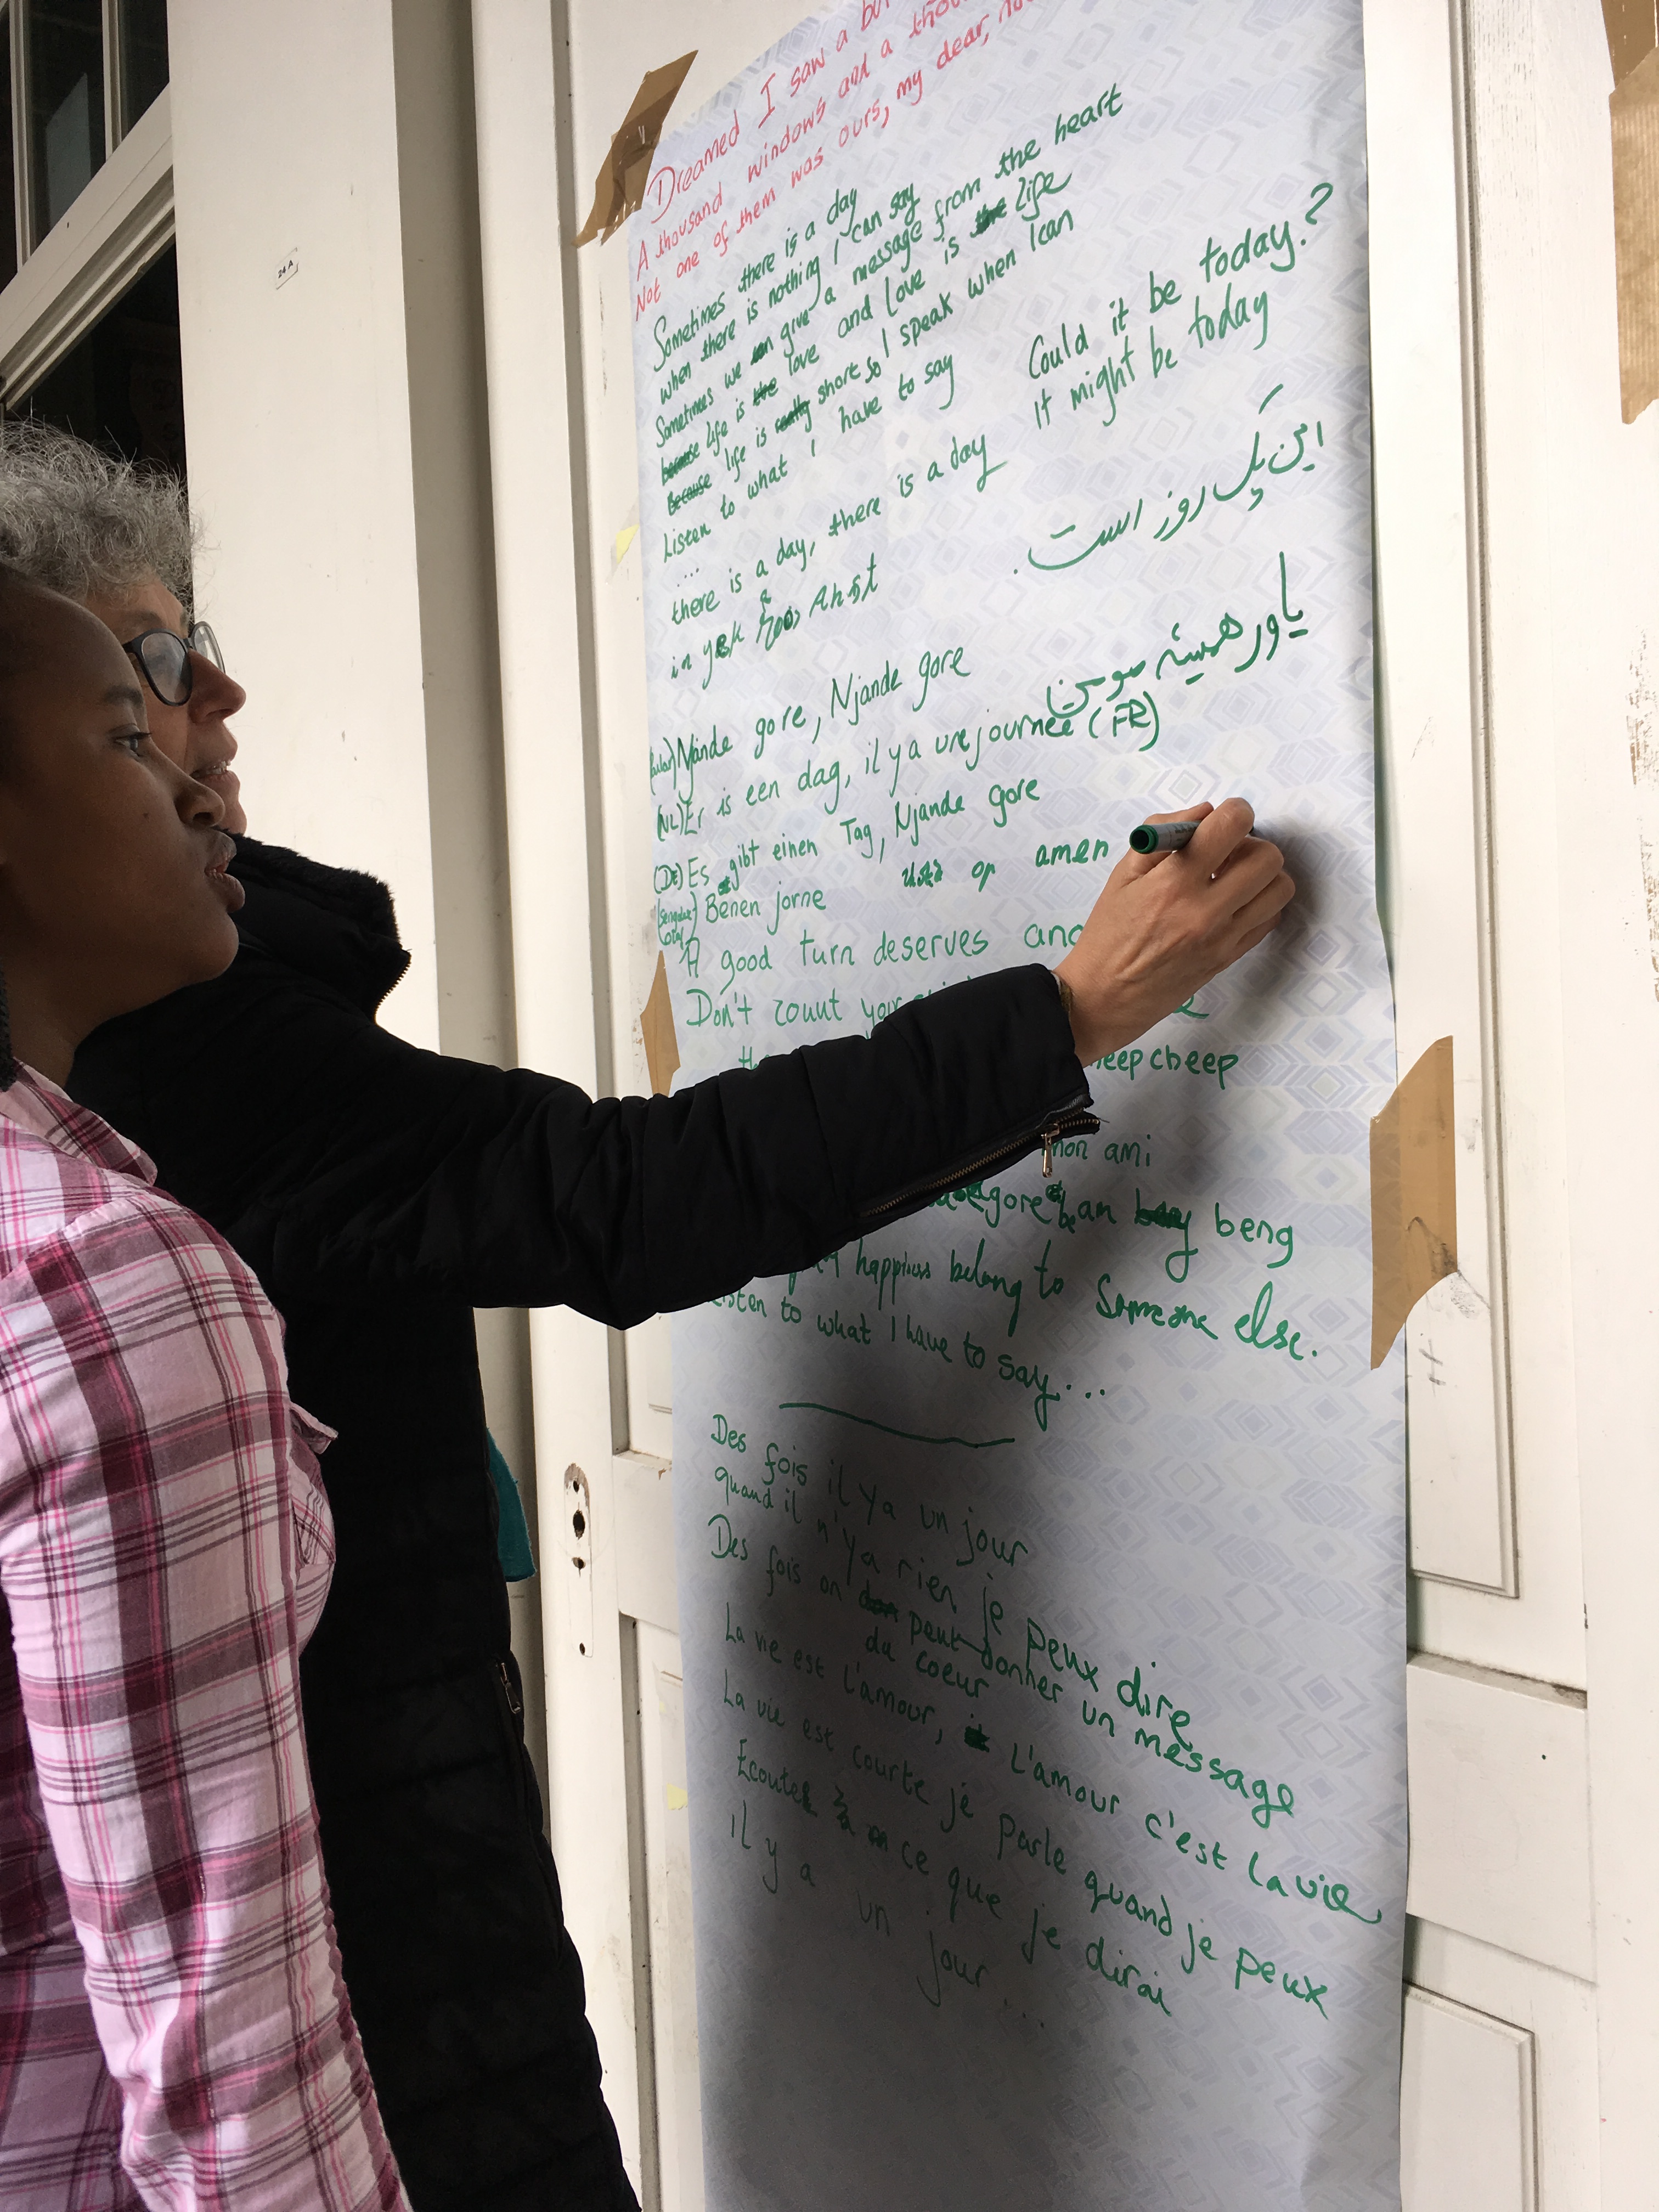 Dreamed I saw a
A thousand windows and a
Not one of them was ours, my dear,
Sometimes there is a day
when there is nothing I can say
Sometimes we give a message from the heart
because life is the love and love is the life
Because life is really short so I speak when I can
Listen to what I have to say
....
there is a day, there is a day
Could it be today?
It might be today
in yek Ahst
این یک روز است.
یاور همیشه مومن
Njande gore, Njande gore
(NL) Er is een dag, il y a une journée (FR)
(DE) Es gibt einen Tag, Njande gore
Benen jorne
op amen
A good turn deserves
Don't count your
cheep
mon ami
gore an beng
happiness belong to Someone else.
Listen to what I have to say...
Des fois il y a un jour
quand il n'y a rien je peux dire
Des fois on peut donner un message
du coeur
La vie est l'amour, L'amour c'est la vie
La vie est courte je parle quand je peux
Ecoutez ce que je dirai
il y a un jour ...
24 A